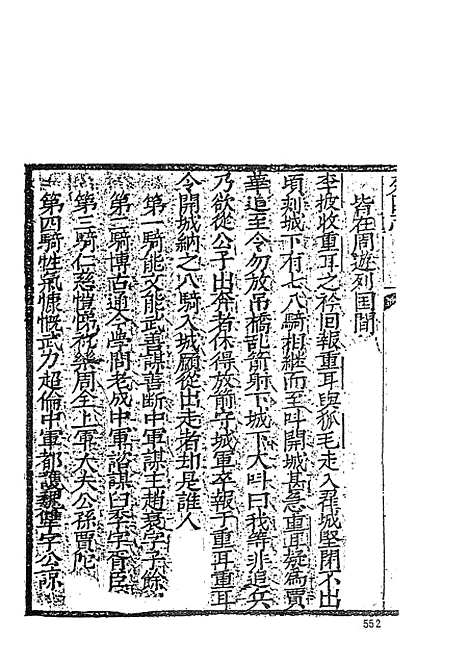 皆在周遊列囯間
李披收重耳之衿囬報重耳與狐毛走入翟城堅閉不出
頃刻城下有七八騎相継而至呌開城甚急重耳疑為賈
華追至令勿放吊橋乱箭射下城下大呌曰我等非追兵
乃欲從公子出奔者休得放箭守城軍卒報于重耳重耳
令開城納之八騎入城願從出走者却是誰人
第一騎能文能武善謀善断中軍謀主趙衰字子餘
第二騎博古通今學問老成中軍諮謀臼季字胥臣
第三騎仁慈愷悌祀樂周全上軍大夫公孫賈佗
第四騎性氣慷慨武力超倫中軍都護魏犨字公諒
552